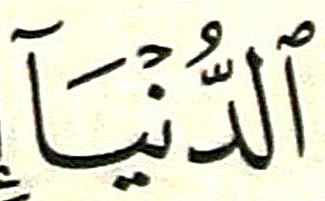 ٱلدُّنْيَآ